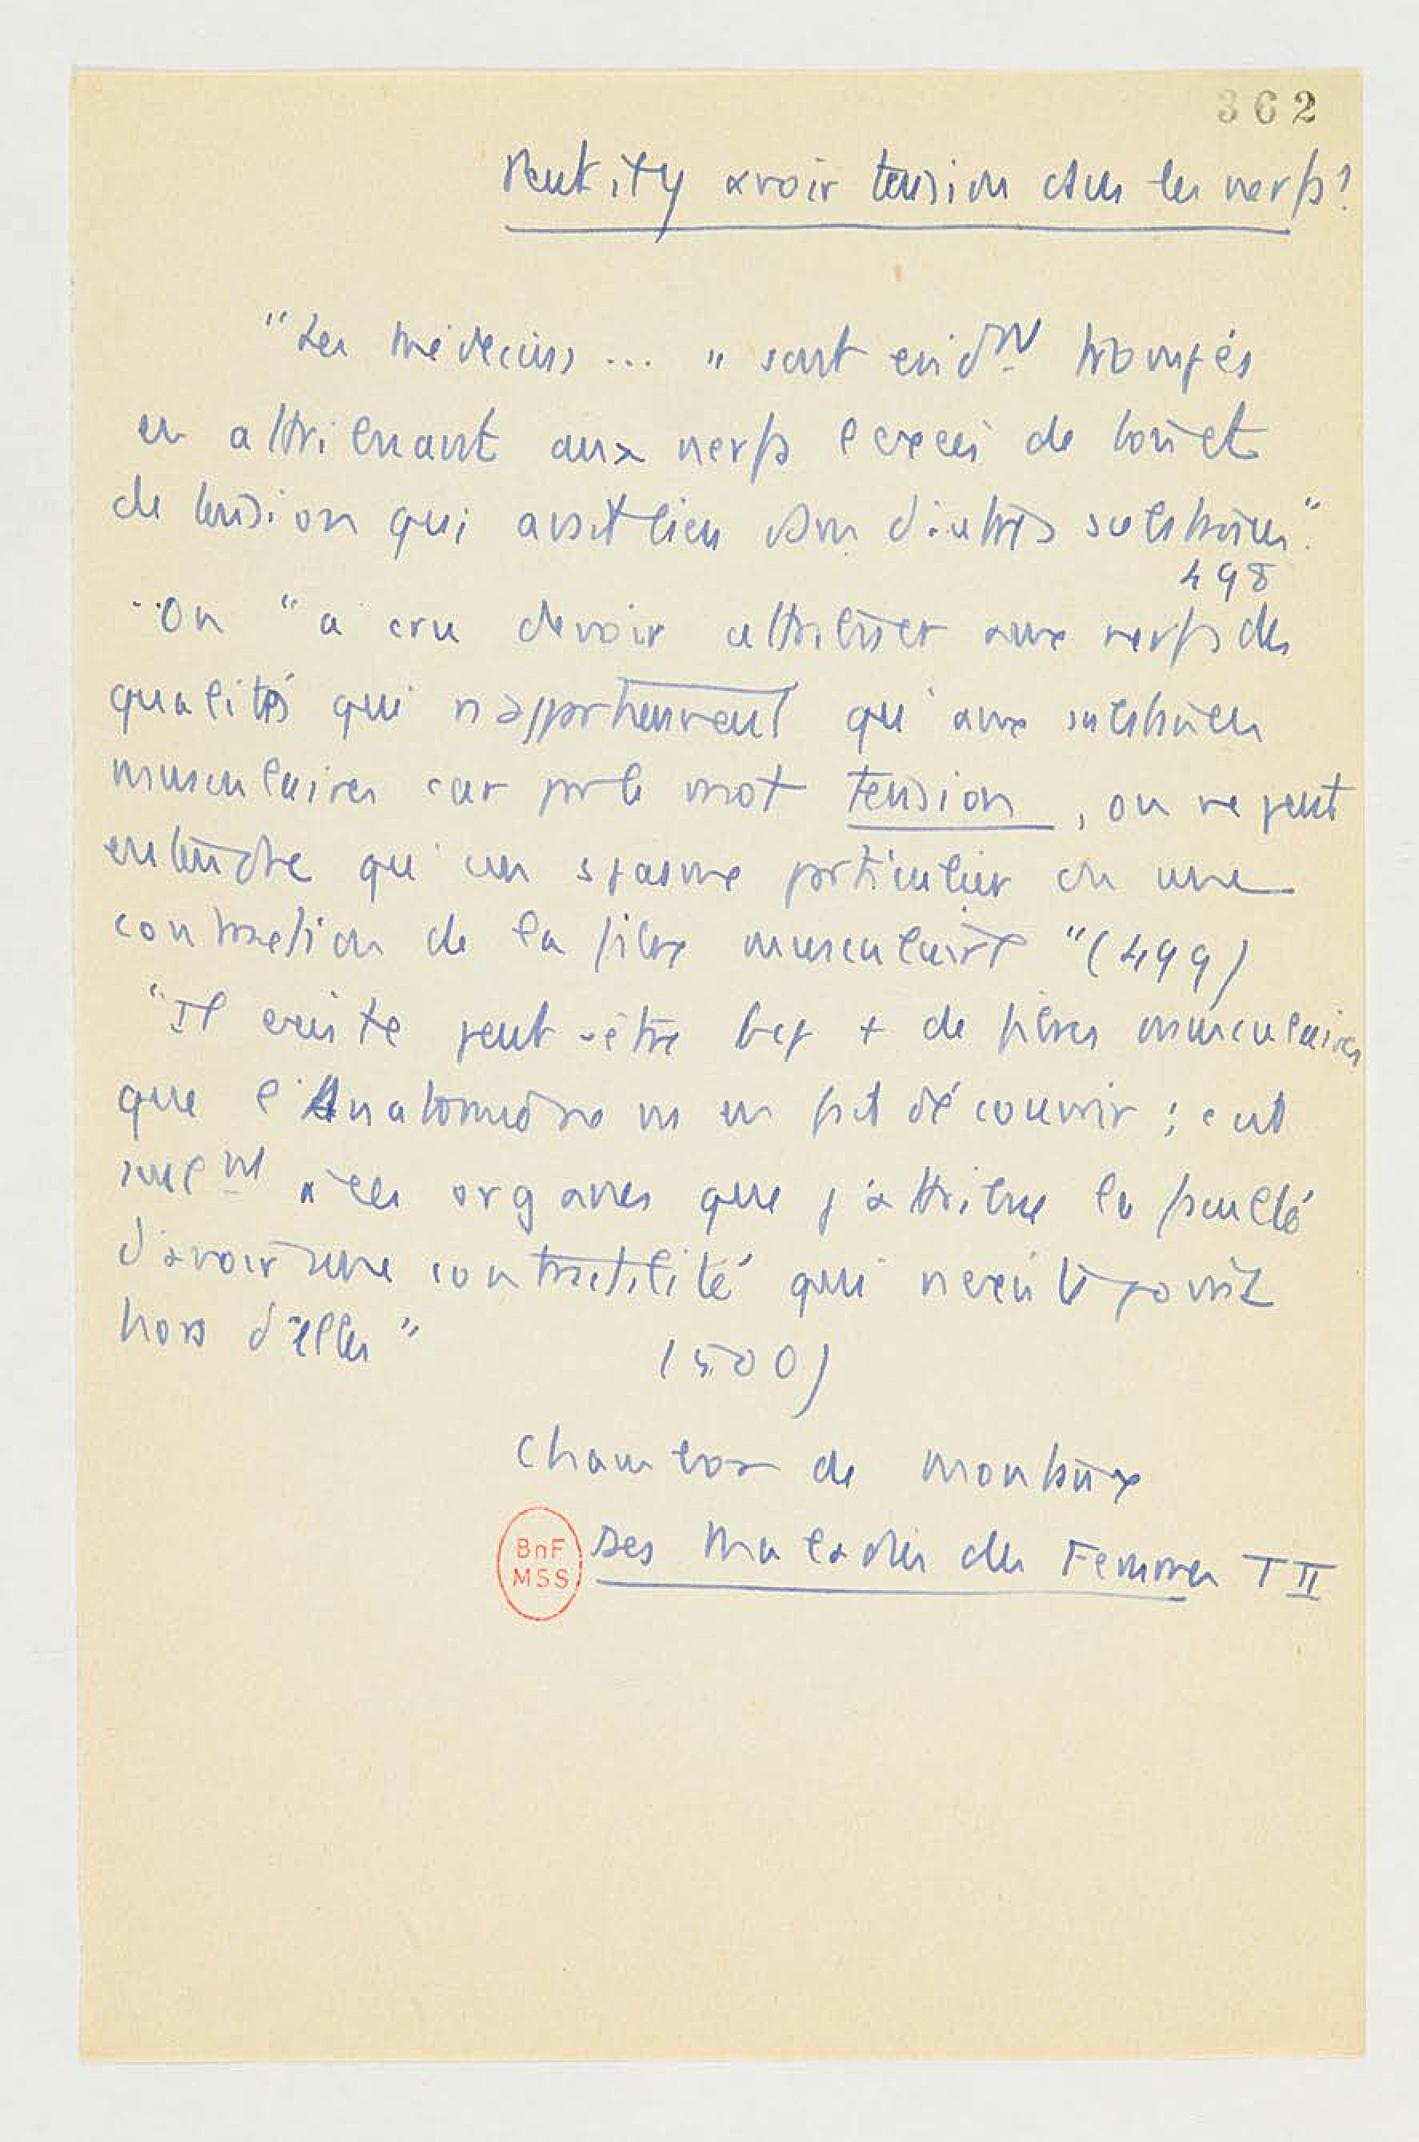 362
Peut-il y avoir tension dans les nerfs?
"Les médecins ... " sont évidt trompés
en attribuant aux nerfs l'excès de ton et
de tension qui avait lieu dans d'autres substances."
498
"On "a cru devoir attribuer aux nerfs des
qualités qui n'appartiennent qu'aux substances
musculaires car par le mot tension, on ne peut
entendre qu'un spasme particulier ou une
contraction de la fibre musculaire "(499)
"Il existe peut-être bcp + de fibres musculaires
que l'Anatomie ne en fait découvrir ; c'est
seulnt à ces organes que j'attribue la faculté
d'avoir une contractilité qui n'existe point
hors d'elles"
(500)
Chambon de Montaux
Des Maladies des Femmes T II
BnF
MSS